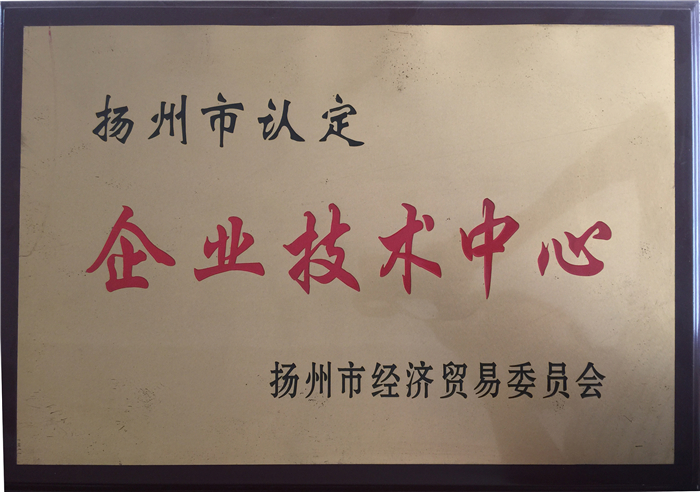 扬州市认定
企业技术中心
扬州市经济贸易委员会